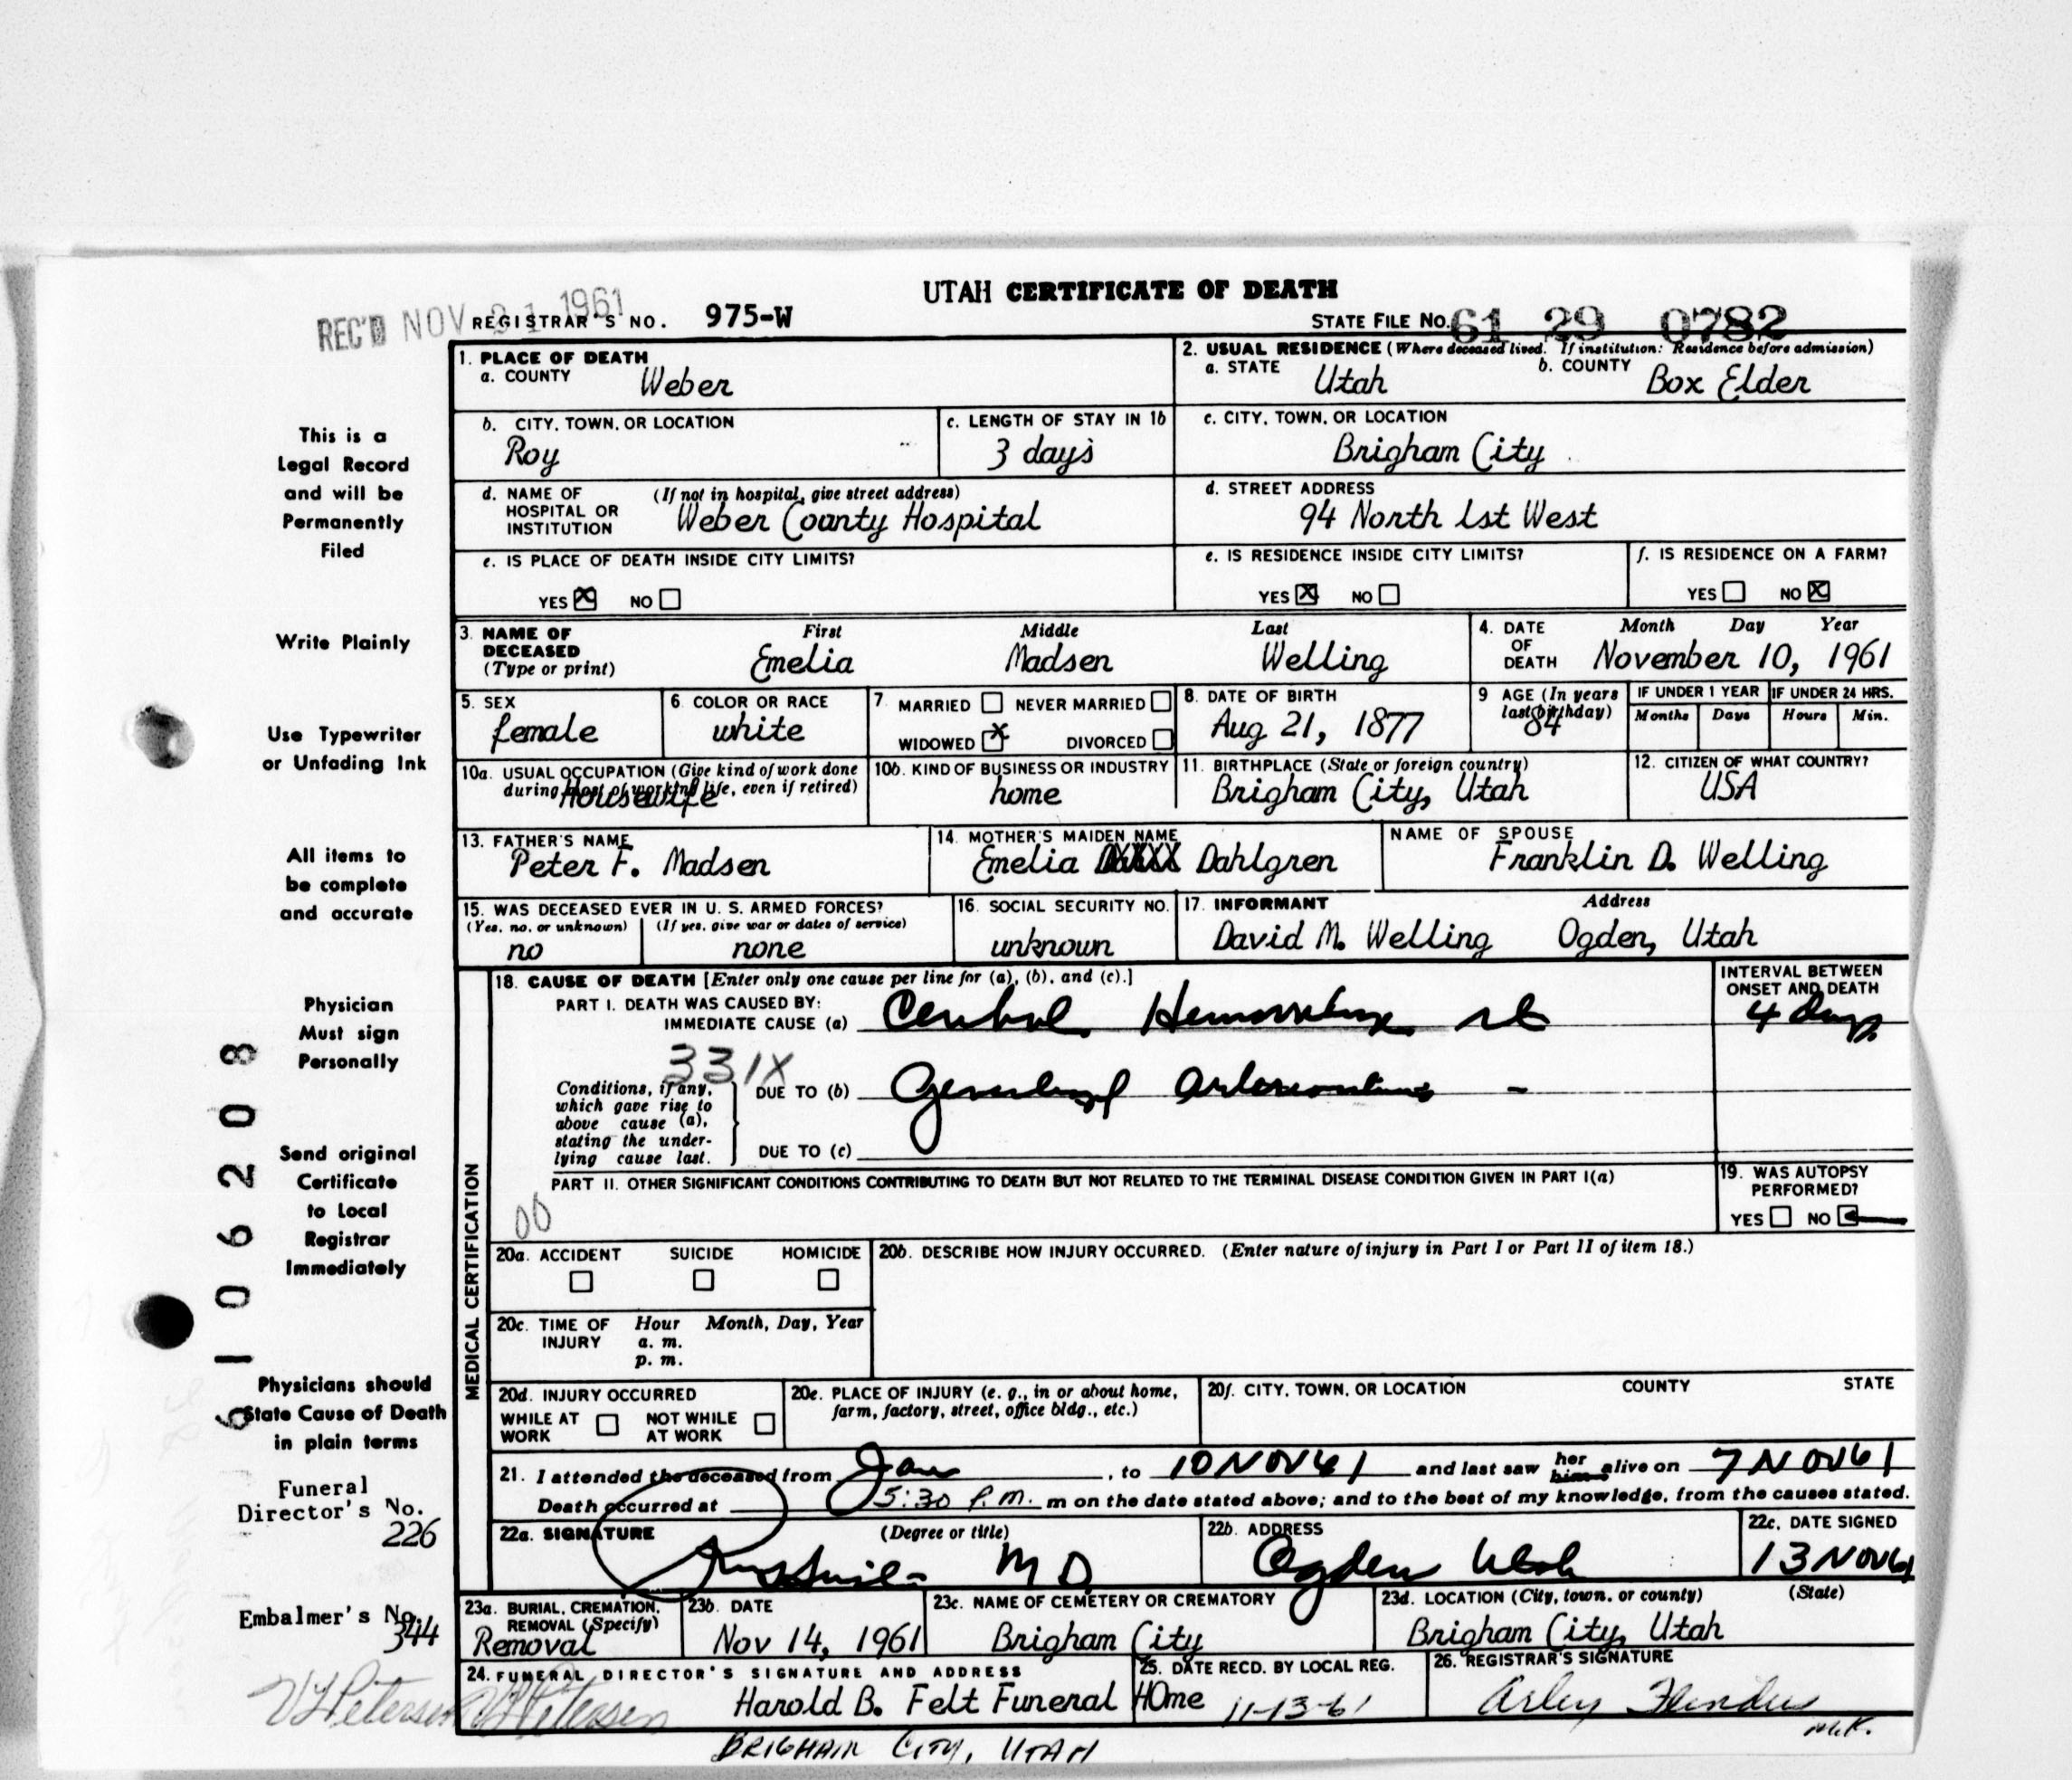 UTAH CERTIFICATE OF DEATH
REC'D NOV 21 1961
REGISTRAR'S NO. 975-W
STATE FILE NO. 61 29 0782
1. PLACE OF DEATH
a. COUNTY Weber
2. USUAL RESIDENCE (Where deceased lived. If institution: Residence before admission)
a. STATE Utah b. COUNTY Box Elder
b. CITY, TOWN, OR LOCATION Roy
c. LENGTH OF STAY IN 1b 3 days
c. CITY, TOWN, OR LOCATION Brigham City
d. NAME OF HOSPITAL OR INSTITUTION (If not in hospital, give street address) Weber County Hospital
d. STREET ADDRESS 94 North 1st West
e. IS PLACE OF DEATH INSIDE CITY LIMITS?
YES X NO
e. IS RESIDENCE INSIDE CITY LIMITS?
YES X NO
f. IS RESIDENCE ON A FARM?
YES NO X
3. NAME OF DECEASED (Type or print)
First Middle Last
Emelia Madsen Welling
4. DATE OF DEATH
Month Day Year
November 10, 1961
5. SEX female
6. COLOR OR RACE white
7 MARRIED NEVER MARRIED
WIDOWED X DIVORCED
8. DATE OF BIRTH Aug 21, 1877
9 AGE (In years last birthday) 84
IF UNDER 1 YEAR Months Days
IF UNDER 24 HRS. Hours Min.
10a. USUAL OCCUPATION (Give kind of work done during most of working life, even if retired) Housewife
10b. KIND OF BUSINESS OR INDUSTRY home
11. BIRTHPLACE (State or foreign country) Brigham City, Utah
12. CITIZEN OF WHAT COUNTRY? USA
13. FATHER'S NAME Peter F. Madsen
14. MOTHER'S MAIDEN NAME Emelia Dahlgren
NAME OF SPOUSE Franklin D. Welling
15. WAS DECEASED EVER IN U. S. ARMED FORCES?
(Yes, no, or unknown) no
(If yes, give war or dates of service) none
16. SOCIAL SECURITY NO. unknown
17. INFORMANT Address
David M. Welling Ogden, Utah
MEDICAL CERTIFICATION
18. CAUSE OF DEATH [Enter only one cause per line for (a), (b), and (c).]
INTERVAL BETWEEN ONSET AND DEATH
PART I. DEATH WAS CAUSED BY:
IMMEDIATE CAUSE (a) Cerebral Hemorrhage rt 4 days
331X
Conditions, if any, which gave rise to above cause (a), stating the underlying cause last.
DUE TO (b) Generalized arteriosclerosis -
DUE TO (c)
PART II. OTHER SIGNIFICANT CONDITIONS CONTRIBUTING TO DEATH BUT NOT RELATED TO THE TERMINAL DISEASE CONDITION GIVEN IN PART I(a)
00
19. WAS AUTOPSY PERFORMED?
YES NO
20a. ACCIDENT SUICIDE HOMICIDE
20b. DESCRIBE HOW INJURY OCCURRED. (Enter nature of injury in Part I or Part II of item 18.)
20c. TIME OF INJURY Hour Month, Day, Year
a. m.
p. m.
20d. INJURY OCCURRED
WHILE AT WORK NOT WHILE AT WORK
20e. PLACE OF INJURY (e. g., in or about home, farm, factory, street, office bldg., etc.)
20f. CITY, TOWN, OR LOCATION COUNTY STATE
21. I attended the deceased from Jan, to 10 NOV 61 and last saw her him alive on 7 NOV 61
Death occurred at 5:30 P.M. m on the date stated above; and to the best of my knowledge, from the causes stated.
22a. SIGNATURE (Degree or title) MD
22b. ADDRESS Ogden Utah
22c. DATE SIGNED 13 NOV 61
23a. BURIAL, CREMATION, REMOVAL (Specify) Removal
23b. DATE Nov 14, 1961
23c. NAME OF CEMETERY OR CREMATORY Brigham City
23d. LOCATION (City, town, or county) (State) Brigham City, Utah
24. FUNERAL DIRECTOR'S SIGNATURE AND ADDRESS
Harold B. Felt Funeral HOme
BRIGHAM CITY, UTAH
25. DATE RECD. BY LOCAL REG. 11-13-61
26. REGISTRAR'S SIGNATURE
Arley Flinders
M.K.
This is a
Legal Record
and will be
Permanently
Filed
Write Plainly
Use Typewriter
or Unfading Ink
All items to
be complete
and accurate
Physician
Must sign
Personally
Send original
Certificate
to Local
Registrar
Immediately
Physicians should
State Cause of Death
in plain terms
Funeral
Director's No.
226
Embalmer's No.
344
Petersen Petersen
6106208